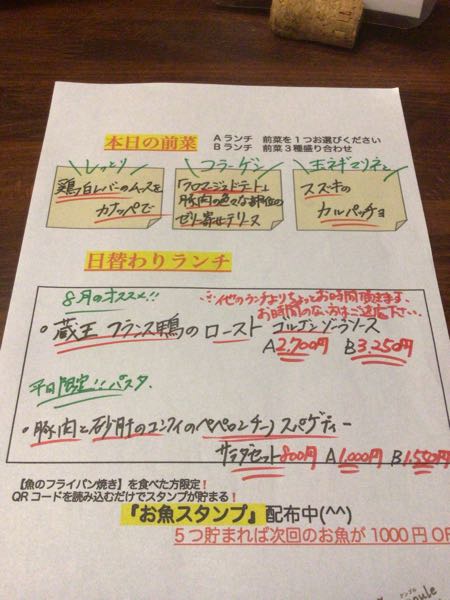 本日の前菜
Aランチ 前菜を1つお選びください
Bランチ 前菜3種盛り合わせ
しっとり
鶏白レバーのムースを
カナッペで
コラーゲン
「フロマージュドテート」
豚肉の色々な部位の
ゼリー寄せテリーヌ
玉ネギマリネと
スズキの
カルパッチョ
日替わりランチ
8月のオススメ!!
他のランチよりちょっとお時間頂きます。
お時間のない方はご遠慮下さい。
・蔵王フランス鴨のロースト ゴルゴンゾーラソース
A2,700円 B3,250円
平日限定!!パスタ
・豚肉と砂肝のコンフィのペペロンチーノスパゲティー
サラダセット800円 A1,000円 B1,550円
【魚のフライパン焼き】を食べた方限定!
QRコードを読み込むだけでスタンプが貯まる!
『お魚スタンプ』配布中(^^)
5つ貯まれば次回のお魚が1000円OF